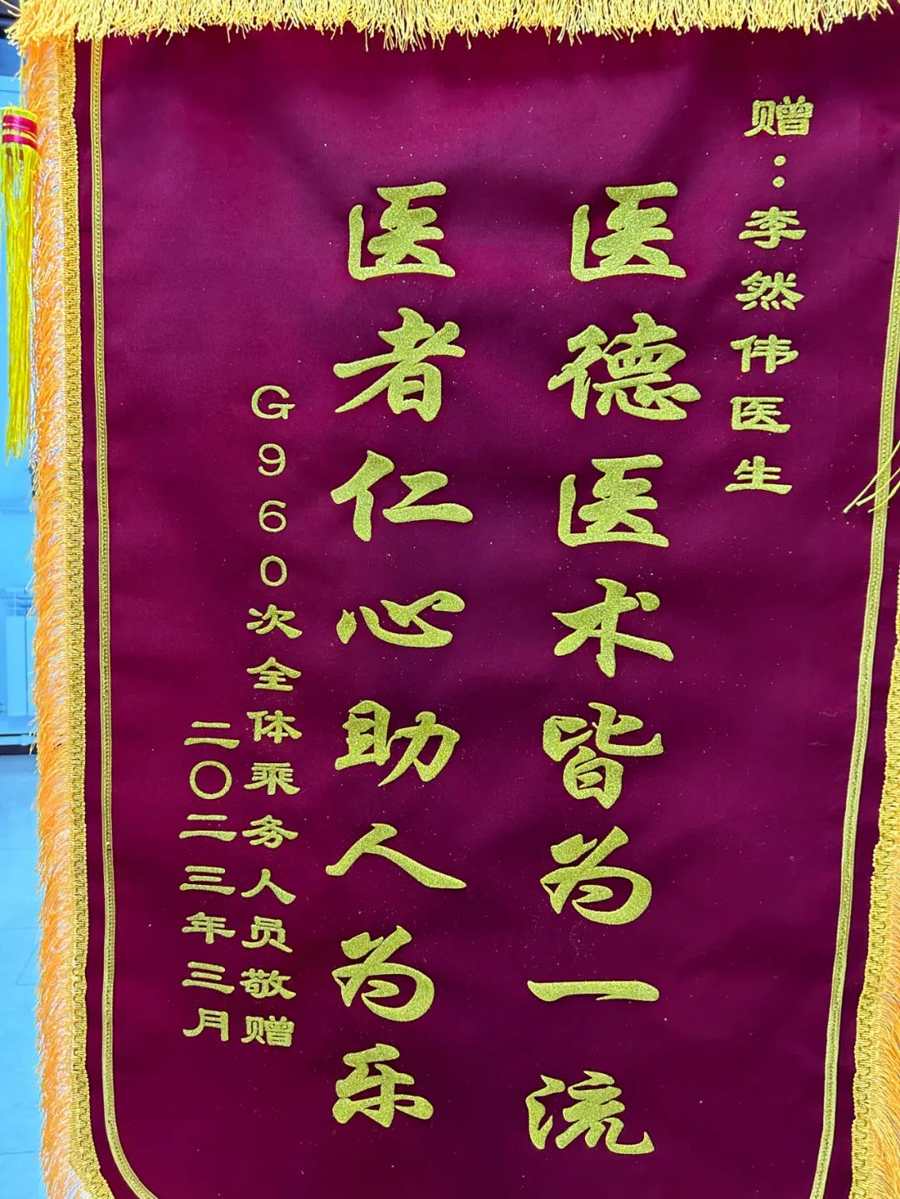 赠：李然伟医生
医德医术皆为一流
医者仁心助人为乐
G960次全体乘务人员敬赠
二〇二三年三月